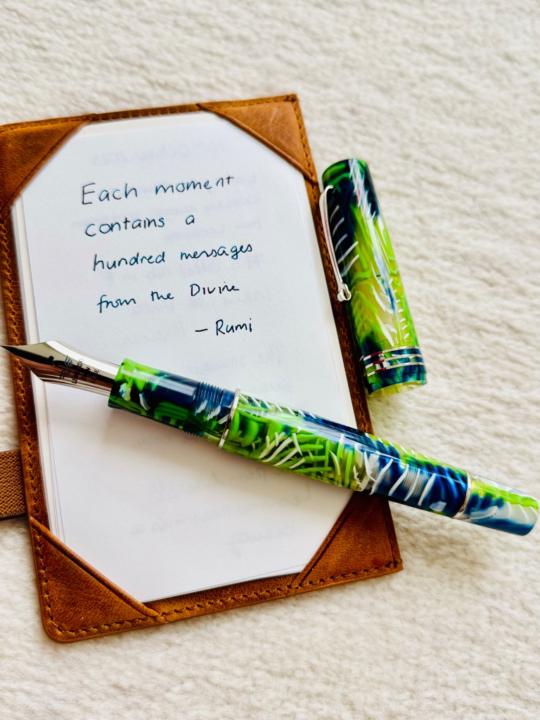 Each moment
contains a
hundred messages
from the Divine
– Rumi